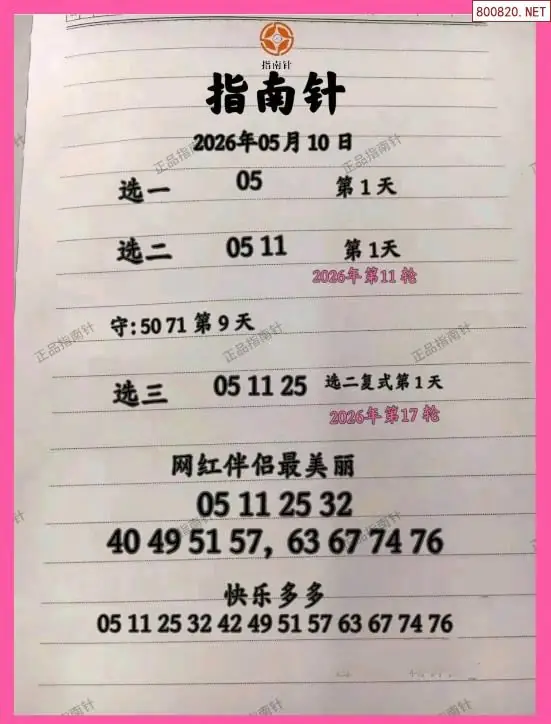 800820.NET
指南针
指南针
2026年05月10日
选一 05 第1天
选二 05 11 第1天
2026年第11轮
守:50 71 第9天
选三 05 11 25 选二复式第1天
2026年第17轮
网红伴侣最美丽
05 11 25 32
40 49 51 57, 63 67 74 76
快乐多多
05 11 25 32 42 49 51 57 63 67 74 76
正品指南针
正品指南针
正品指南针
正品指南针
正品指南针
正品指南针
正品指南针
正品指南针